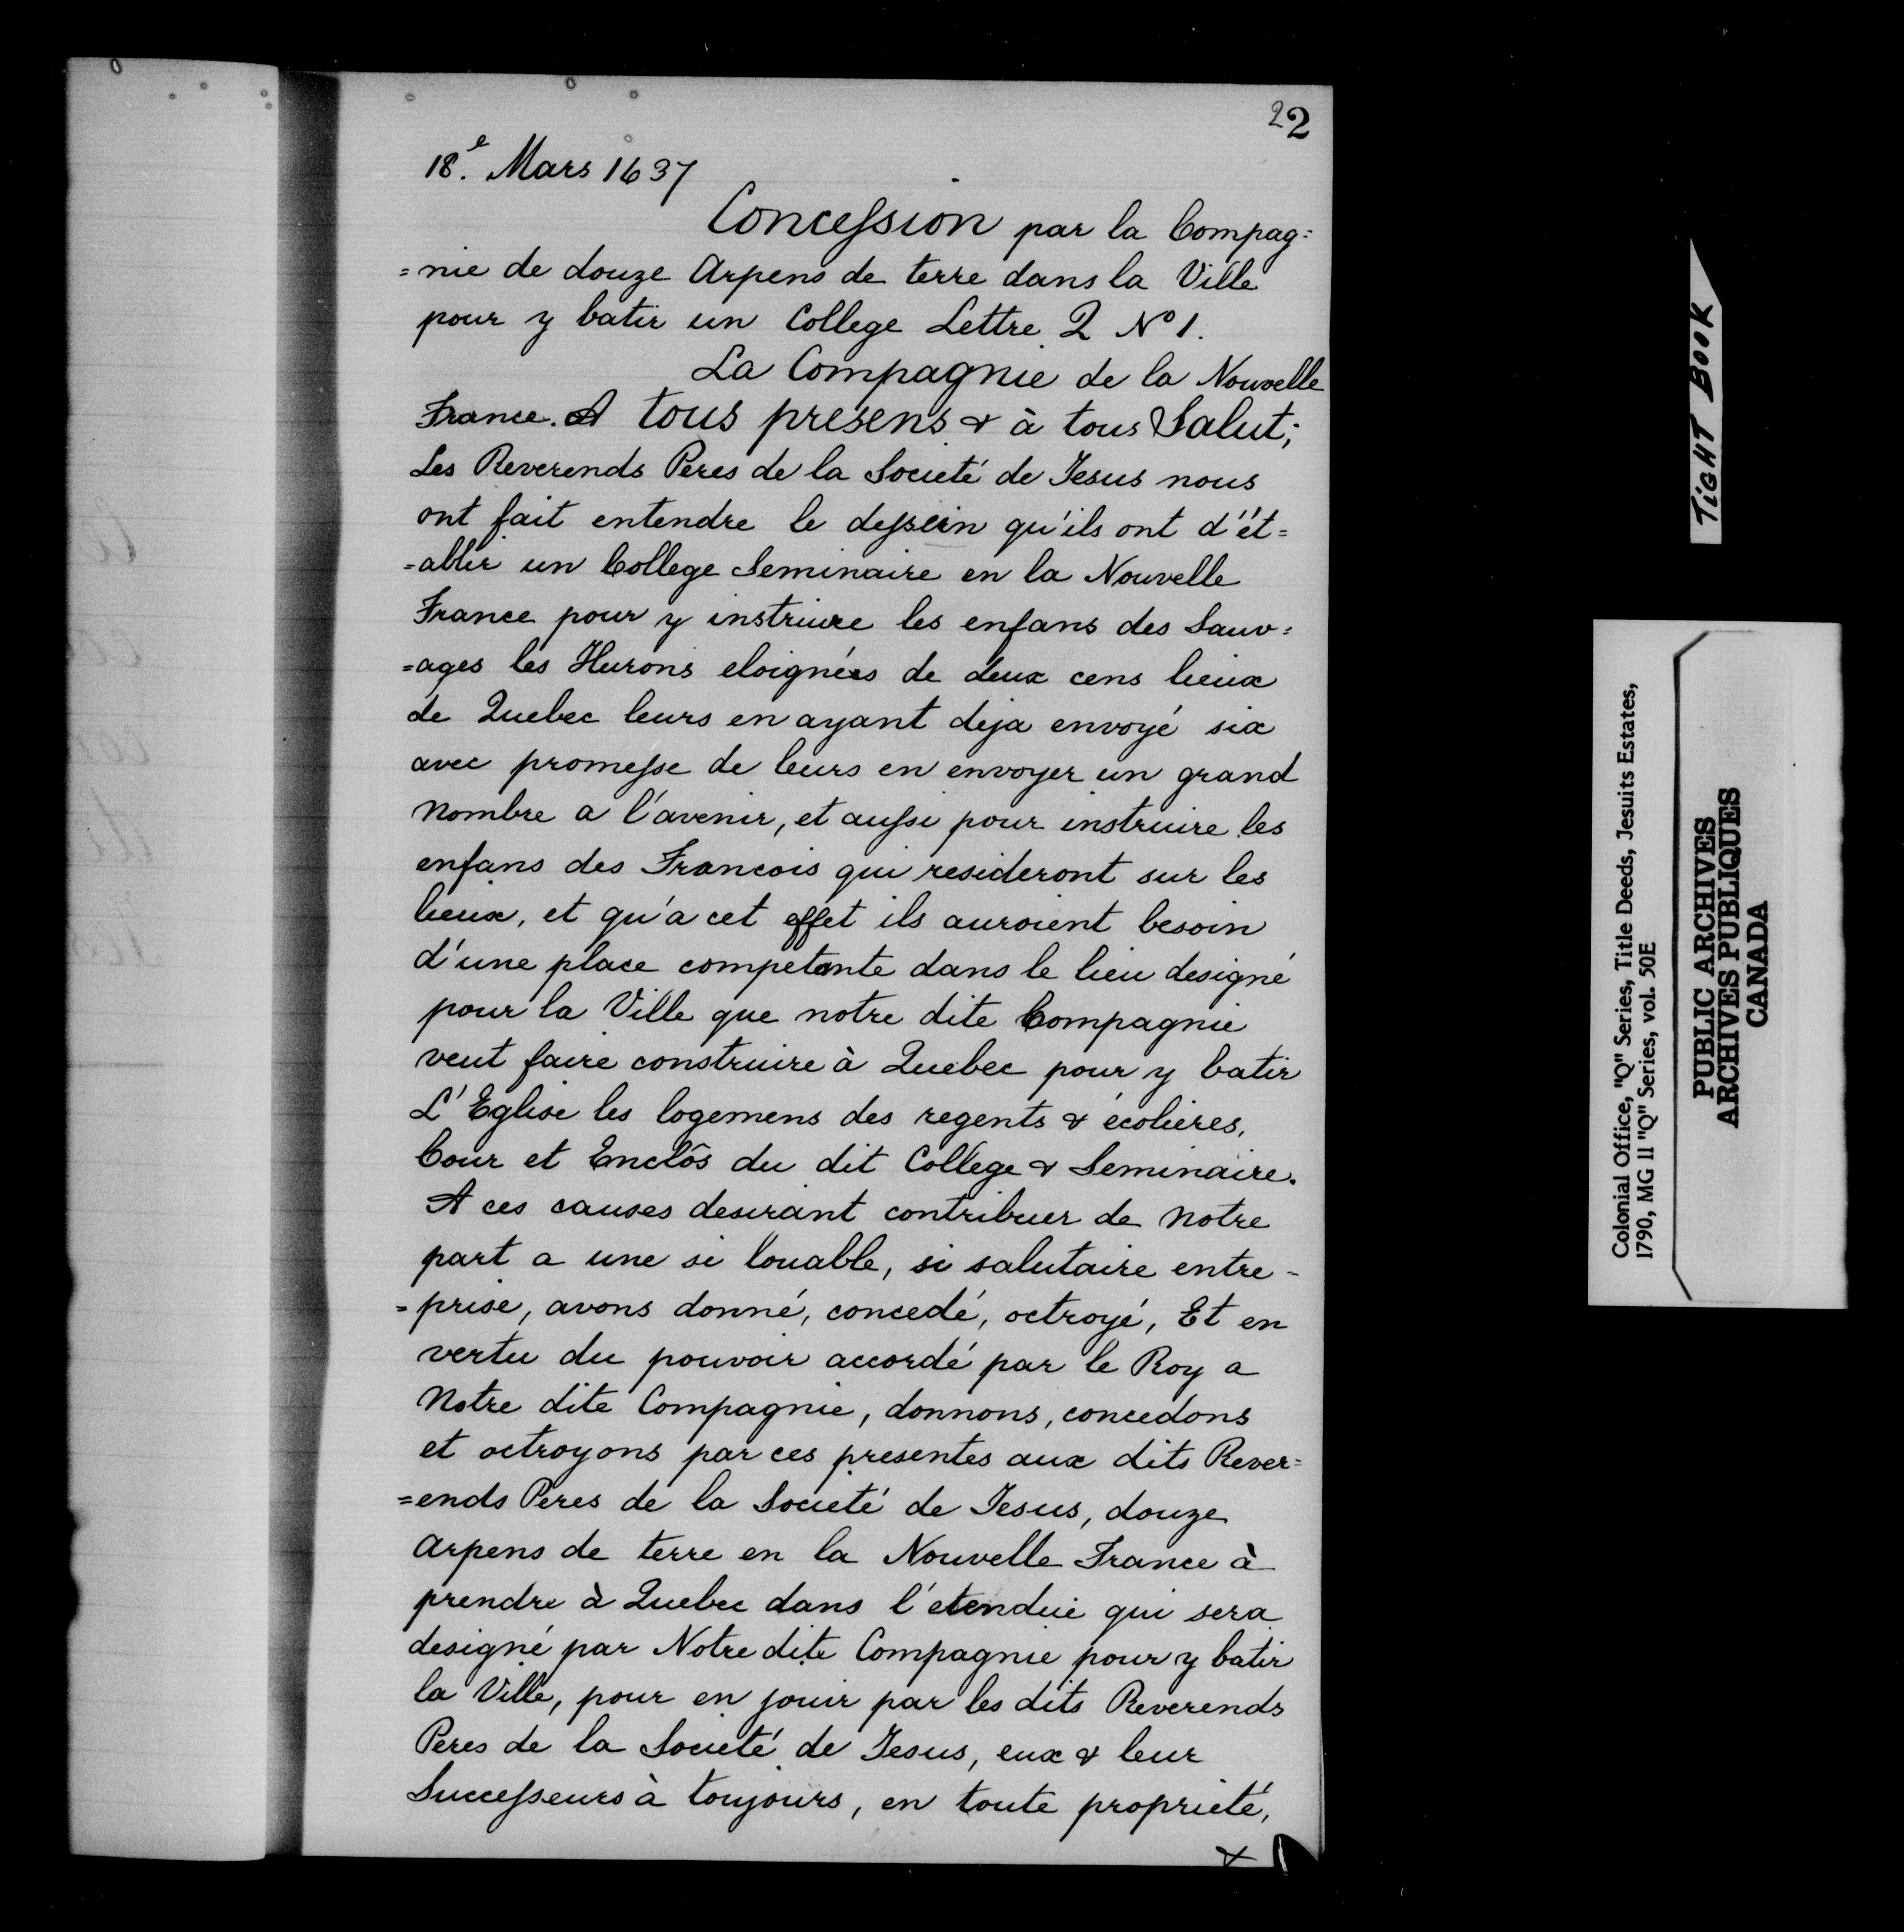 22
18.e Mars 1637
Concession par la Compag=
=nie de douze Arpens de terre dans la Ville
pour y batir un College Lettre Q No 1.
La Compagnie de la Nouvelle
France. A tous presens & à tous Salut;
Les Reverends Peres de la Societé de Jesus nous
ont fait entendre le dessein qu'ils ont d'ét=
=ablir un College Seminaire en la Nouvelle
France pour y instruire les enfans des Sauv=
=ages les Hurons eloignées de deux cens lieux
de Quebec leurs en ayant deja envoyé six
avec promesse de leurs en envoyer un grand
nombre a l'avenir, et aussi pour instruire les
enfans des Francois qui resideront sur les
lieux, et qu'a cet effet ils auroient besoin
d'une place competante dans le lieu designé
pour la Ville que notre dite Compagnie
veut faire construire à Quebec pour y batir
L'Eglise les logemens des regents & écolieres,
Cour et Enclôs du dit College & Seminaire.
A ces causes desirant contribuer de notre
part a une si louable, si salutaire entre-
=prise, avons donné, concedé, octroyé, Et en
vertu du pouvoir accordé par le Roy a
Notre dite Compagnie, donnons, concedons
et octroyons par ces presentes aux dits Rever=
=ends Peres de la Societé de Jesus, douze
arpens de terre en la Nouvelle France à
prendre à Quebec dans l'etendue qui sera
designé par Notre dite Compagnie pour y batir
la Ville, pour en jouir par les dits Reverends
Peres de la Societé de Jesus, eux & leur
Successeurs à toujours, en toute proprieté,
&
TIGHT BOOK
Colonial Office, "Q" Series, Title Deeds, Jesuits Estates,
1790, MG 11 "Q" Series, vol. 50E
PUBLIC ARCHIVES
ARCHIVES PUBLIQUES
CANADA